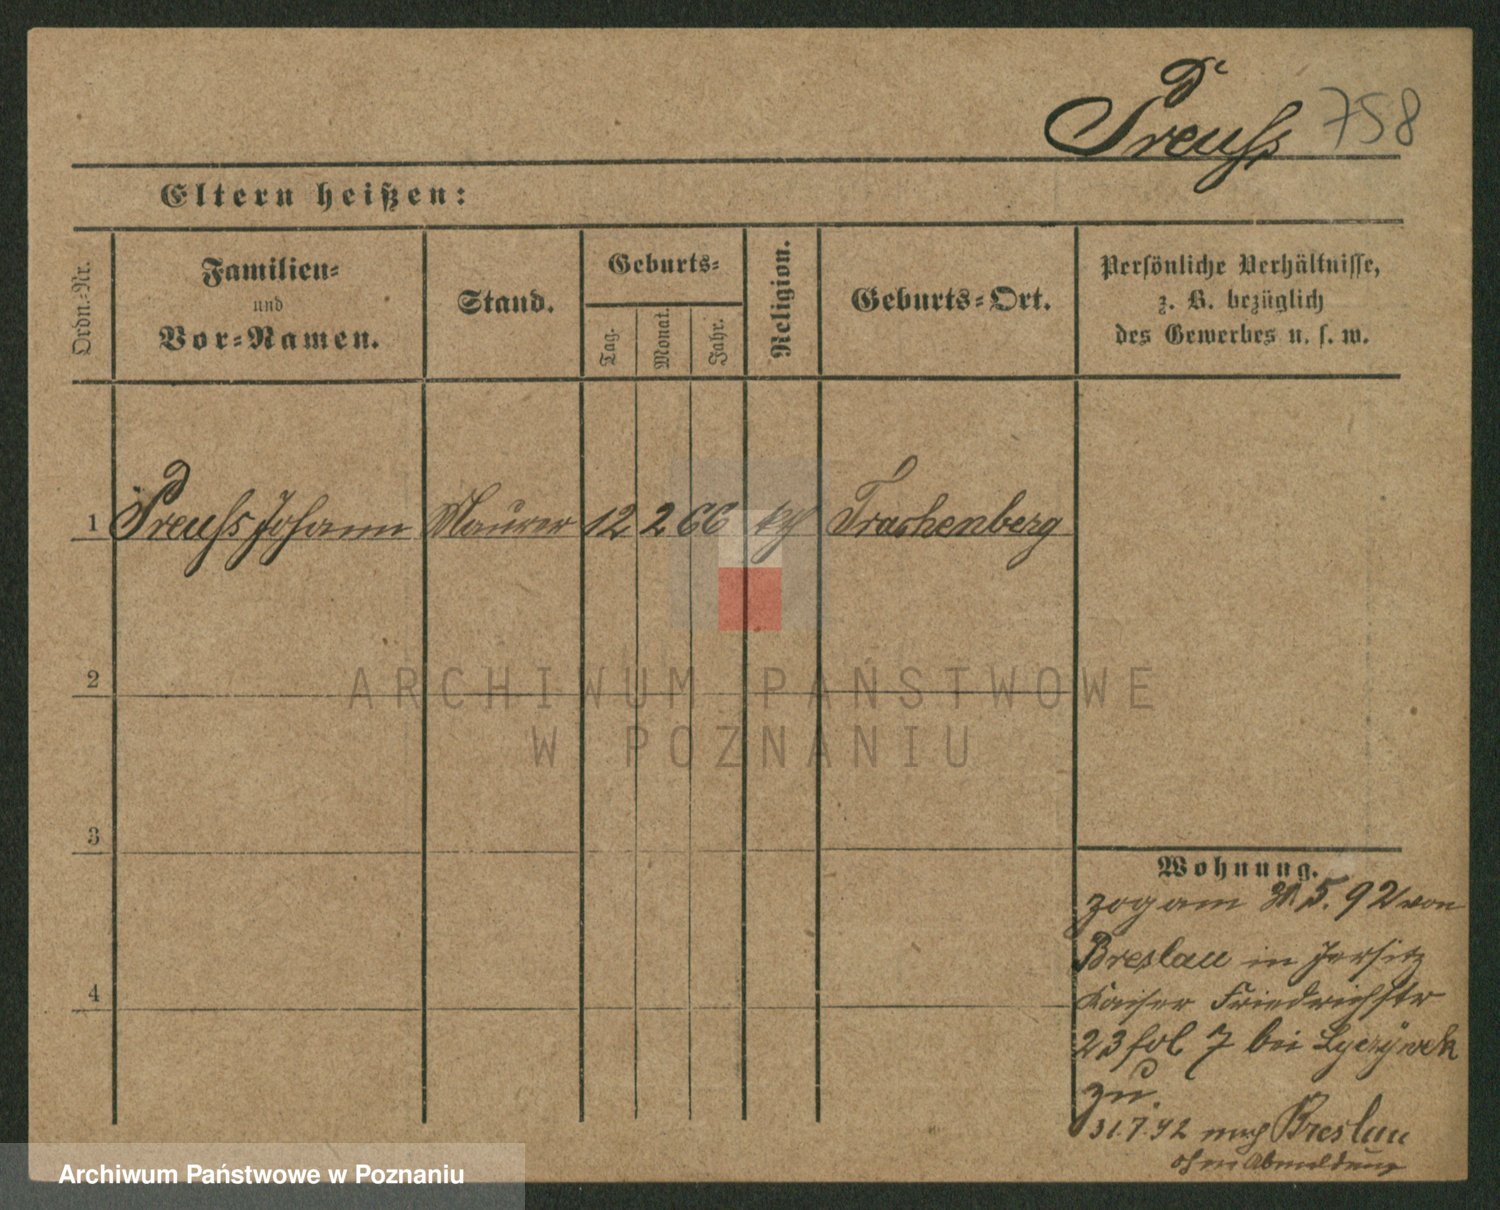 Preuß 758
Eltern heißen:
Ordn.-Nr.
Familien-
und
Vor-Namen.
Stand.
Geburts-
Tag.
Monat.
Jahr.
Religion.
Geburts-Ort.
Persönliche Verhältnisse,
z. B. bezüglich
des Gewerbes u. s. w.
1 Preuß Johann Maurer 12 2 66 kth Trachenberg
2
3
4
Wohnung.
zog am 5. 92 von
Breslau in Jersitz
Kaiser Friedrichstr
23 fol 7 bei
zu.
31.7.92 nach Breslau
ohne Abmeldung
ARCHIWUM PAŃSTWOWE
W POZNANIU
Archiwum Państwowe w Poznaniu